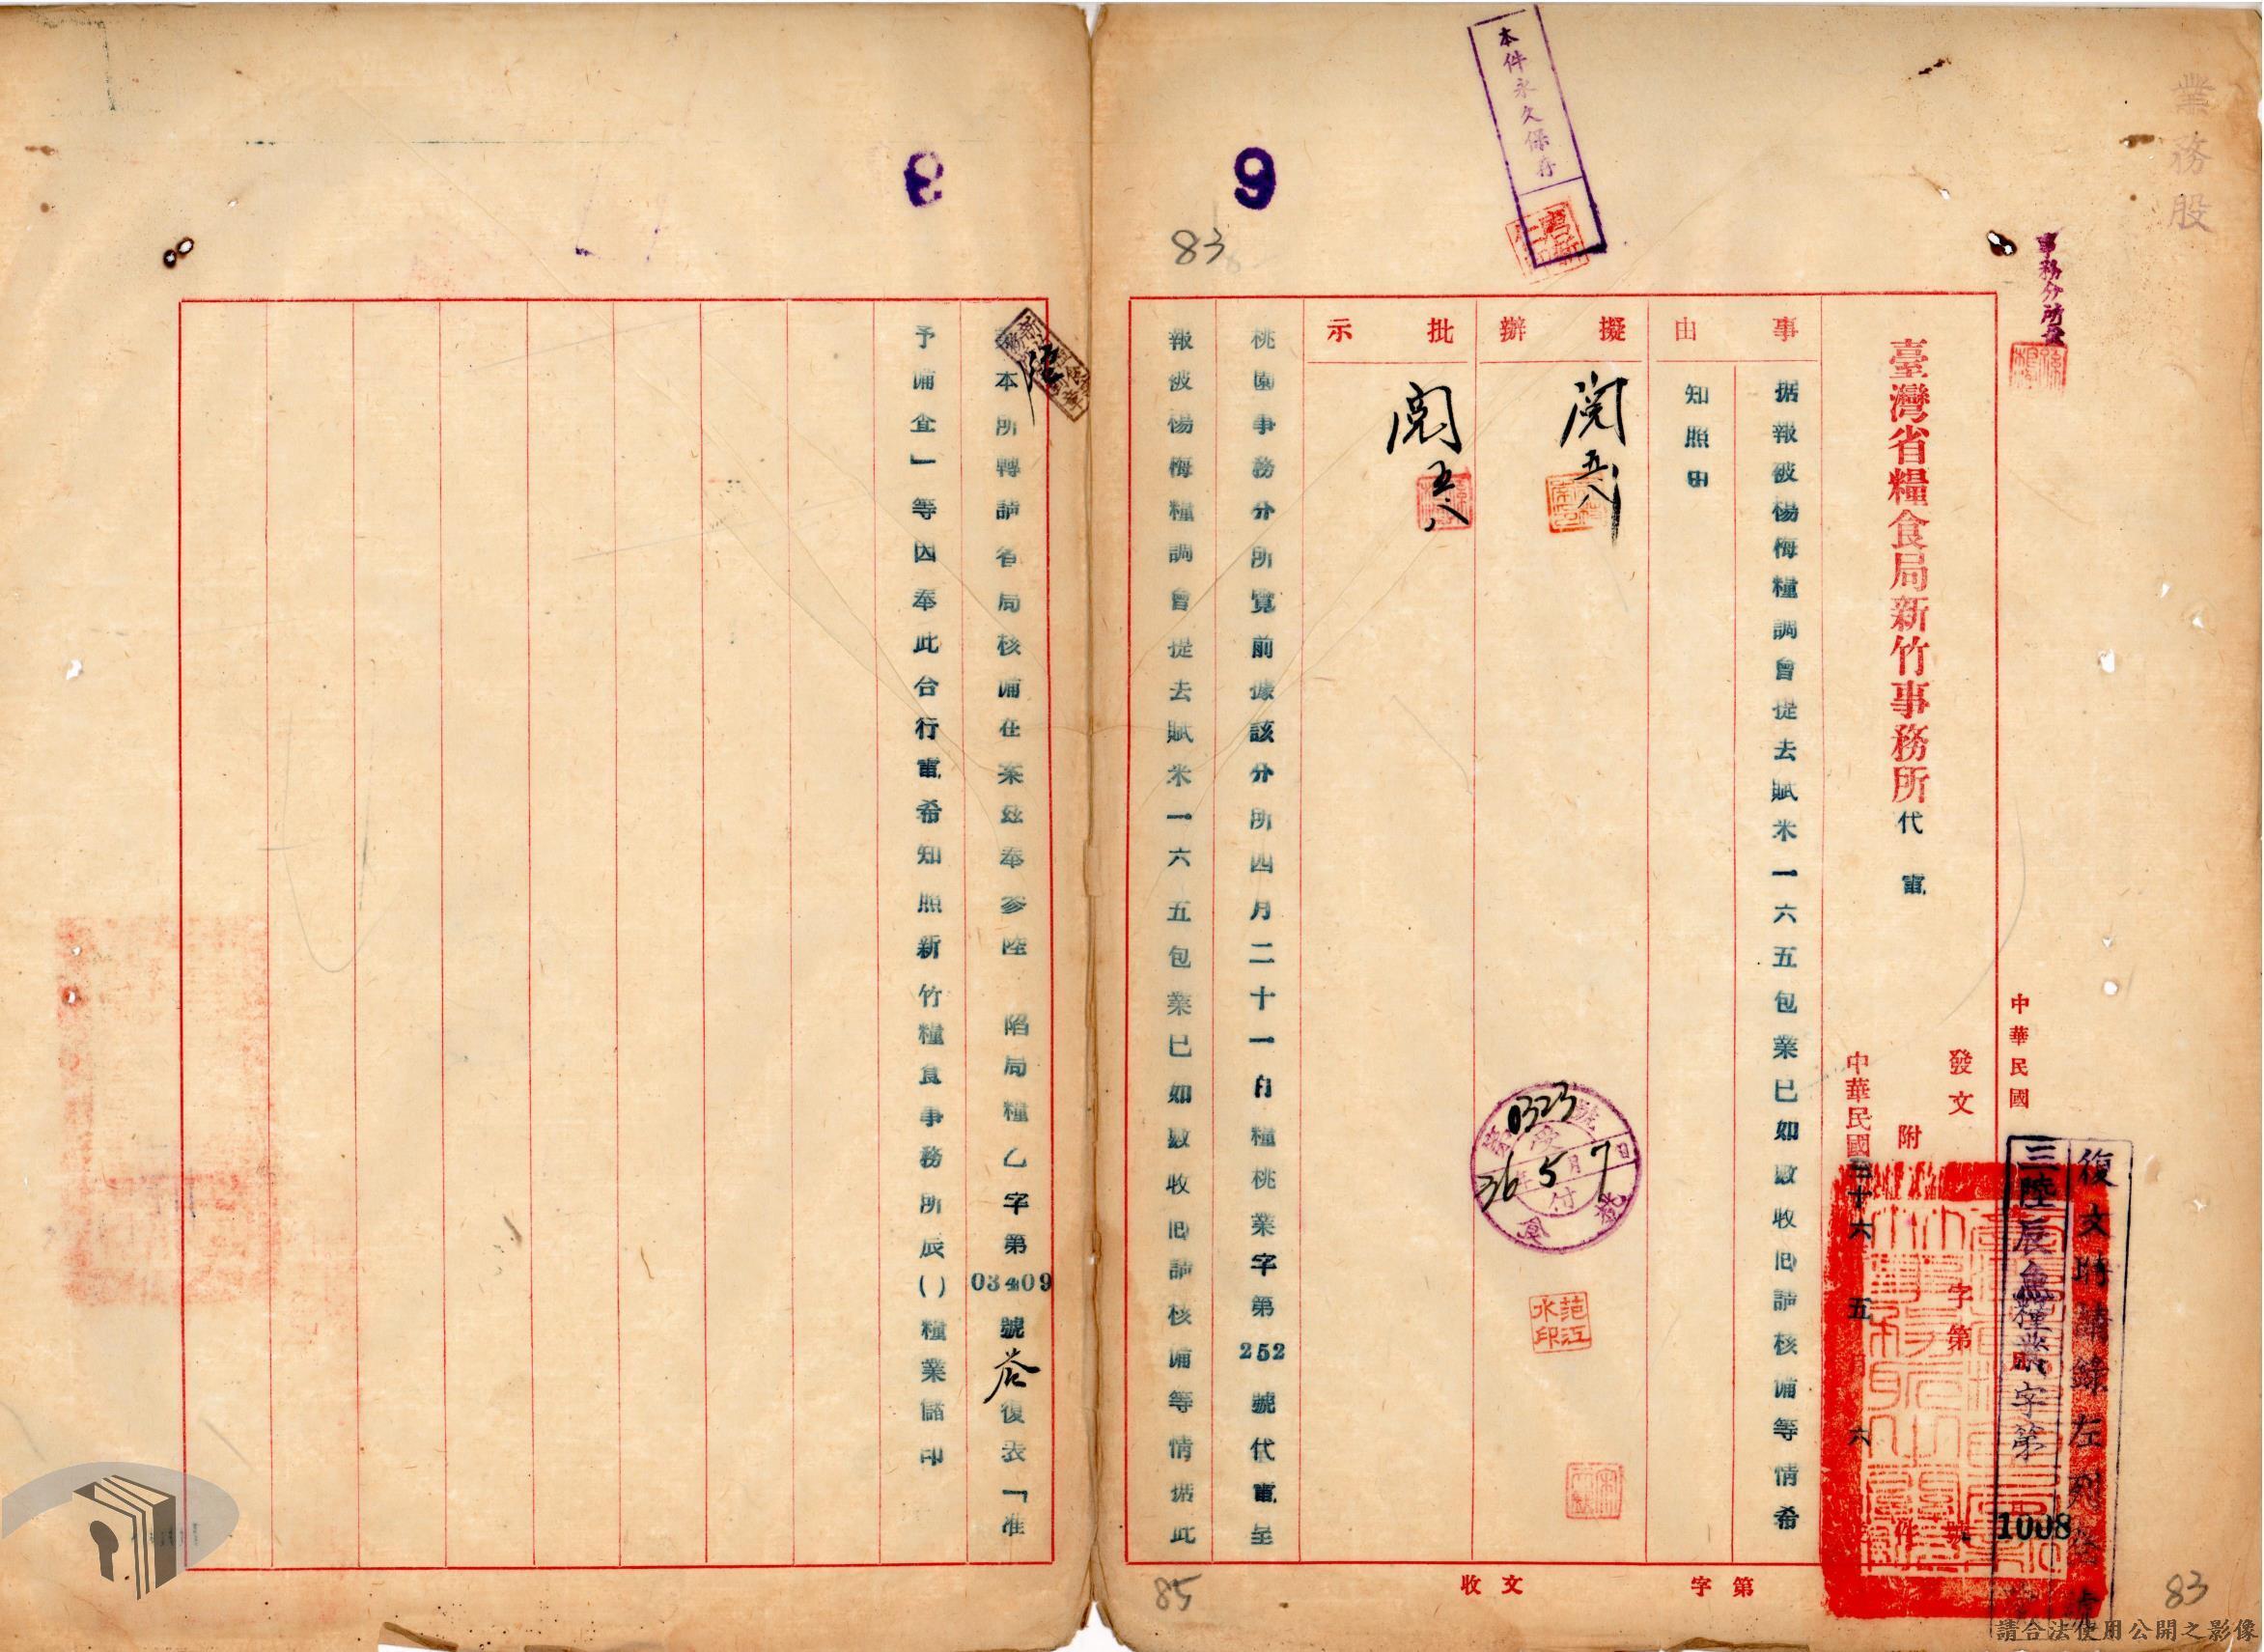 業務股
事務分所
本件永久保存
9
83
臺灣省糧食局新竹事務所代電
中華民國
發文
字第
號
附
件
復文時請錄左列
三陸辰 糧業字第
1008
中華民國三十六 五月六
事由
据報被楊梅糧調會提去賦米一六五包業已如數收回請核備等情希
知照由
擬辦
閱 五八
批示
閱 五八
第0323號
36年5月7日
范江水印
桃園事務分所覽前據該分所四月二十一日糧桃業字第252號代電呈
報被楊梅糧調會提去賦米一六五包業已如數收回請核備等情据此
收文
字第
85
83
8
本所轉請省局核備在案茲奉參陸 陷局糧乙字第03409號 復表「准
予備查」等因奉此合行電希知照新竹糧食事務所辰()糧業儲印
請合法使用公開之影像